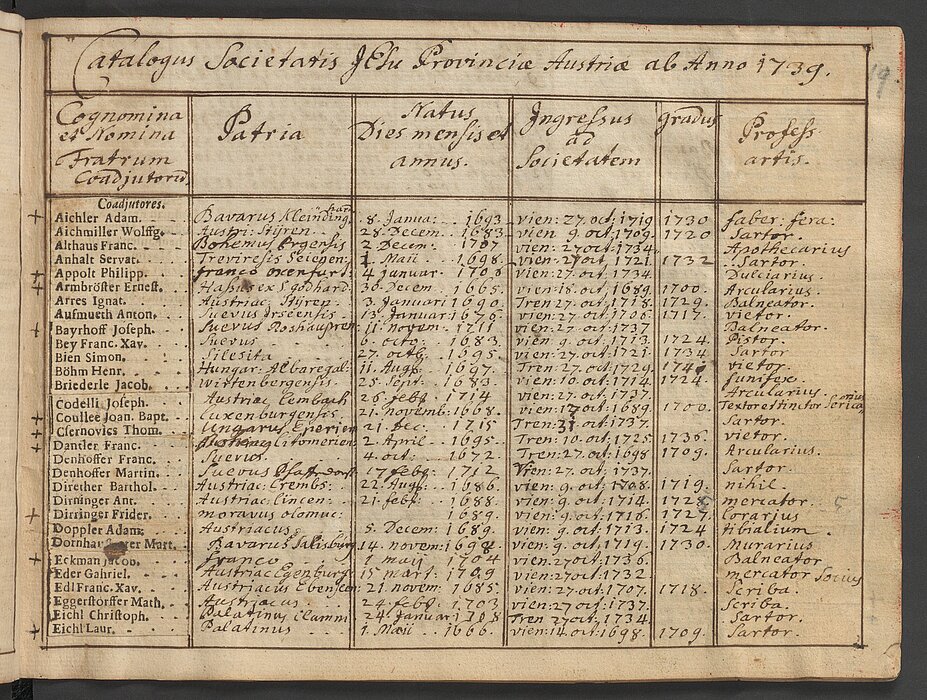 Catalogus Societatis JEsu Provinciæ Austriæ ab Anno 1739.
19.
Cognomina et Nomina Fratrum Coadjutorũ
Patria
Natus Dies mensis et annus.
Ingressus ad Societatem
Gradus
Profess artis.
Coadjutores.
Aichler Adam. Bavarus 8. Januar. 1693 vien: 27. oct: 1719 1730 faber: fera:
Aichmiller Wolffg. Austri: Stÿren. 28. Decem. 1683. vien 9. oct: 1709. 1720 Sartor.
Althaus Franc. Bohemus 2. Decem. 1707 vien: 27 oct: 1734. Apothecarius
Anhalt Servat. Treviresis 1. Maii 1698. vien: 27 oct: 1721 1732 Sartor.
Appolt Philipp. franco 4 januar. 1708 vien: 27. oct: 1734 Dulciarius.
Armbröster Ernest. 30. Decem. 1665. vien: 18. oct: 1689 1700. Arcularius.
Arres Ignat. Austriac: Stÿren: 3. Januarii 1690. Tren 27. oct: 1718. 1729. Balneator.
Aufmueth Anton. Suevus 13. Januar 1676 vien: 27. oct: 1706. 1717. vietor.
Bayrhoff Joseph. Suevus 11. novem. 1711 vien: 27. oct: 1737 Balneator.
Bey Franc. Xav. Suevus 6. octo: 1683. vien: 9. oct: 1713 1724. Pistor.
Bien Simon. Silesita 27. octb: 1695 vien: 27. oct: 1721 1734 Sartor
Böhm Henr. Hungar: Albaregal: 11. Aug: 1697. Tren: 27. oct: 1729 vietor.
Briederle Jacob. Wirtenbergensis. 25. Sept: 1683. vien: 10. oct: 1714 1724. funifex.
Codelli Joseph. Austriac Lembach 26 febr: 1714 vien: 27. oct: 1737 Arcularius.
Coullee Joan. Bapt. Luxenburgensis. 21. novemb: 1668. oct: 1689 1700.
Csernovics Thom. Ungarus 21. Dec. 1715 Tren: oct: 1737. Sartor.
Dancler Franc. Litomerien 2. April. 1695. Tren: 10. oct: 1725 1736. vietor.
Denhoffer Franc. Suevus. 4. oct: 1672. Tren: 27. oct: 1698 1709. Arcularius.
Denhoffer Martin. Suevus 17 febr: 1712 Vien: 27. oct: 1737. Sartor.
Direther Barthol. Austriac: Crembs: 22. Aug: 1686. vien: 9. oct: 1708 1719. nihil.
Dirninger Ant. Austriac: Lincen: 21. febr: 1688. vien: 9. oct: 1714 mercator
Dirringer Frider. moravus olomuc: 1689. vien: 9. oct: 1716 1727 lorarius
Doppler Adam. Austriacus 5. Decem: 1689. vien: 9. oct: 1713. 1724 tibialium.
Mart. Bavarus Salisburg 14. novem: vien: 9. oct: 1719. 1730. Murarius
Eckman Jacob. Franco 1 maij 1704 vien: 27 oct: 1736 Balneator
Eder Gabriel. Austriac Egenburg 15 mart: 1709 vien: 27 oct: 1732 mercator Socius
Edl Franc. Xav. Austriacus Ebensen 21. novem: 1685. vien: 27. oct: 1707. 1718. Scriba.
Eggerstorffer Math. Austriacus 24. febr: 1703 vien: 27 oct: 1737. Scriba.
Eichl Christoph. Palatinus 24. Januar Tren 27 oct: 1734 Sartor.
Eichl Laur. Palatinus 1. Maii 1666. vien: 14. oct: 1698. 1709. Sartor.